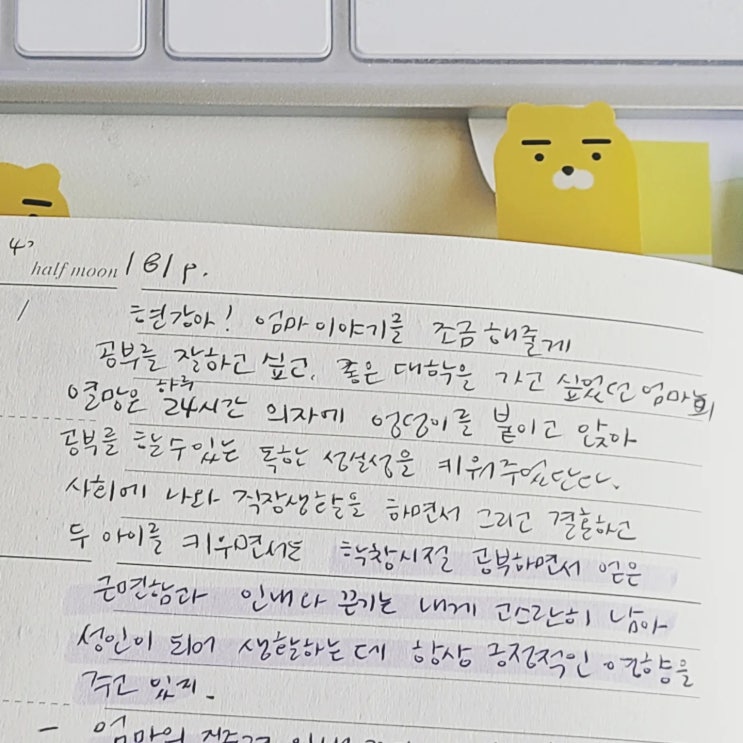 half moon 161 p.
현강아! 엄마 이야기를 조금 해줄게
공부를 잘하고 싶고, 좋은 대학을 가고 싶었던 엄마의
열망은 하루 24시간 의자에 엉덩이를 붙이고 앉아
공부를 할 수 있는 독한 성실성을 키워주었단다.
사회에 나와 직장생활을 하면서 그리고 결혼하고
두 아이를 키우면서도 학창시절 공부하면서 얻은
근면함과 인내나 끈기는 내게 고스란히 남아
성인이 되어 생활하는 데 항상 긍정적인 영향을
주고 있지.
- 엄마의